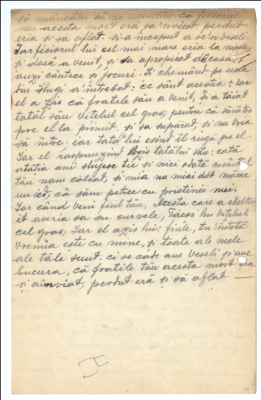 să mâncăm să ne veselim că fecioru
meu acesta mort era și a înviat perdut
era și sa aflat. și a început a se veseli.
Iar feciorul lui cel mai mare era la
și dacă a venit, și sa apropiat de casa,
auzi cântice și jocuri. Și chemând pe una
din slugi a întrebat: ce sânt acestia: iar
el a zis că fratele său a venit, și a tăiat
tatăl său vitelul cel gras; pentru că sănătos
pre el la primit, și sa supărat, și nu vrea
să între; iar tatăl lui esind îl rugă pe el.
Iar el raspunzind zise tatălui său: iată
atâția ani slujesc ție și nici odată
tău nam călcat, și mie nu miai dat măcar
un ied, că sămi petrec cu prietinii mei.
Iar când veni fiiul tău, Acesta care a cheltu-
it averia sa cu curvele, Taeși lui vițelul
cel gras. Iar el zis lui: fiule, tu întotă
vremia ești cu mine, și toate ale mele
ale tale sunt. ci se cade ane veseli și ane
bucura, că fratile tău acesta mort era
și ainviat, perdut eră și să aflat —